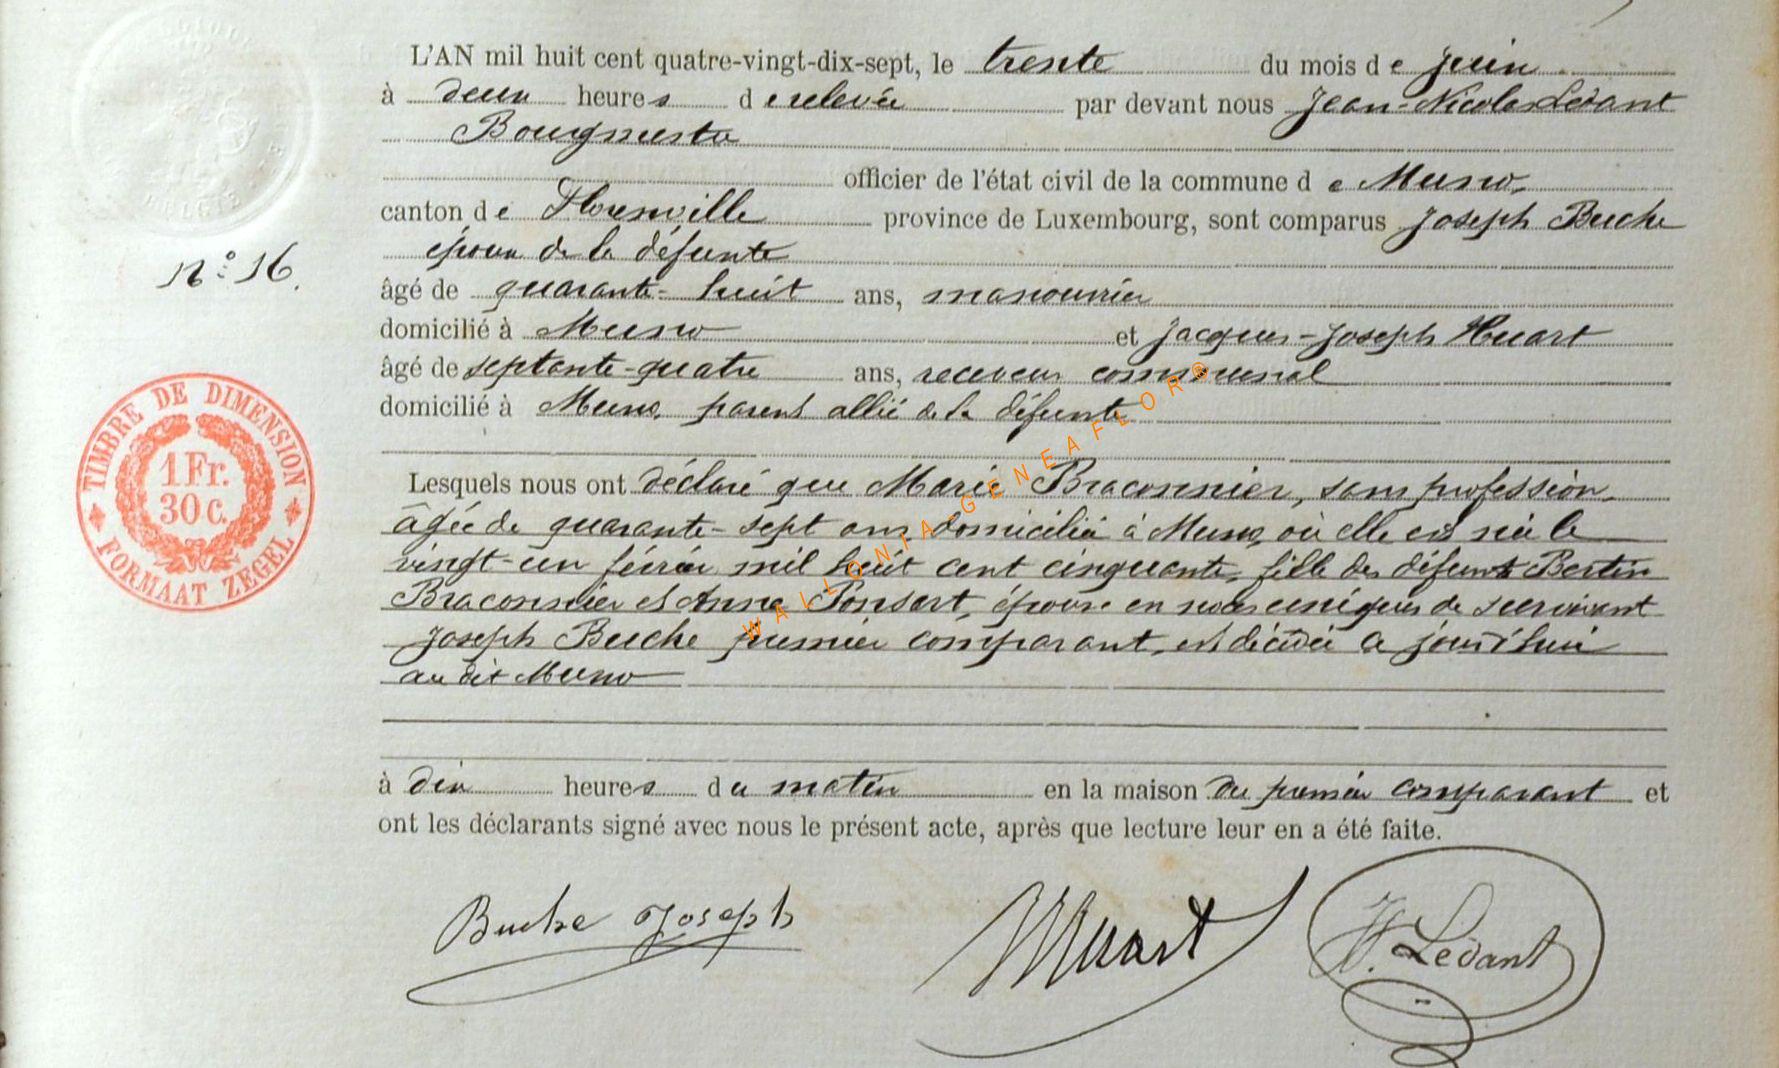 L'AN mil huit cent quatre-vingt-dix-sept, le trente du mois de juin
à deux heures de relevée par devant nous Jean-Nicolas Ledant
Bourgmestre
officier de l'état civil de la commune de Muno,
canton de Florenville province de Luxembourg, sont comparus Joseph Buche
époux de la défunte
N° 16.
âgé de quarante-huit ans, manouvrier
domicilié à Muno et Jacques-Joseph Huart
âgé de septante-quatre ans, receveur communal
domicilié à Muno, parent allié de la défunte
Lesquels nous ont déclaré que Marie Braconnier, sans profession,
âgée de quarante-sept ans, domiciliée à Muno, où elle est née le
vingt-un février mil huit cent cinquante, fille des défunts Bertin
Braconnier et Anne Ponsart, épouse en noces uniques de survivant
Joseph Buche premier comparant, est décédée ce jourd'hui
au dit Muno
à dix heures du matin en la maison du premier comparant et
ont les déclarants signé avec nous le présent acte, après que lecture leur en a été faite.
Buche Joseph
Huart
Ledant
TIMBRE DE DIMENSION
1 Fr.
30 c.
FORMAAT ZEGEL
WALLONIA-GENEAFLOR®